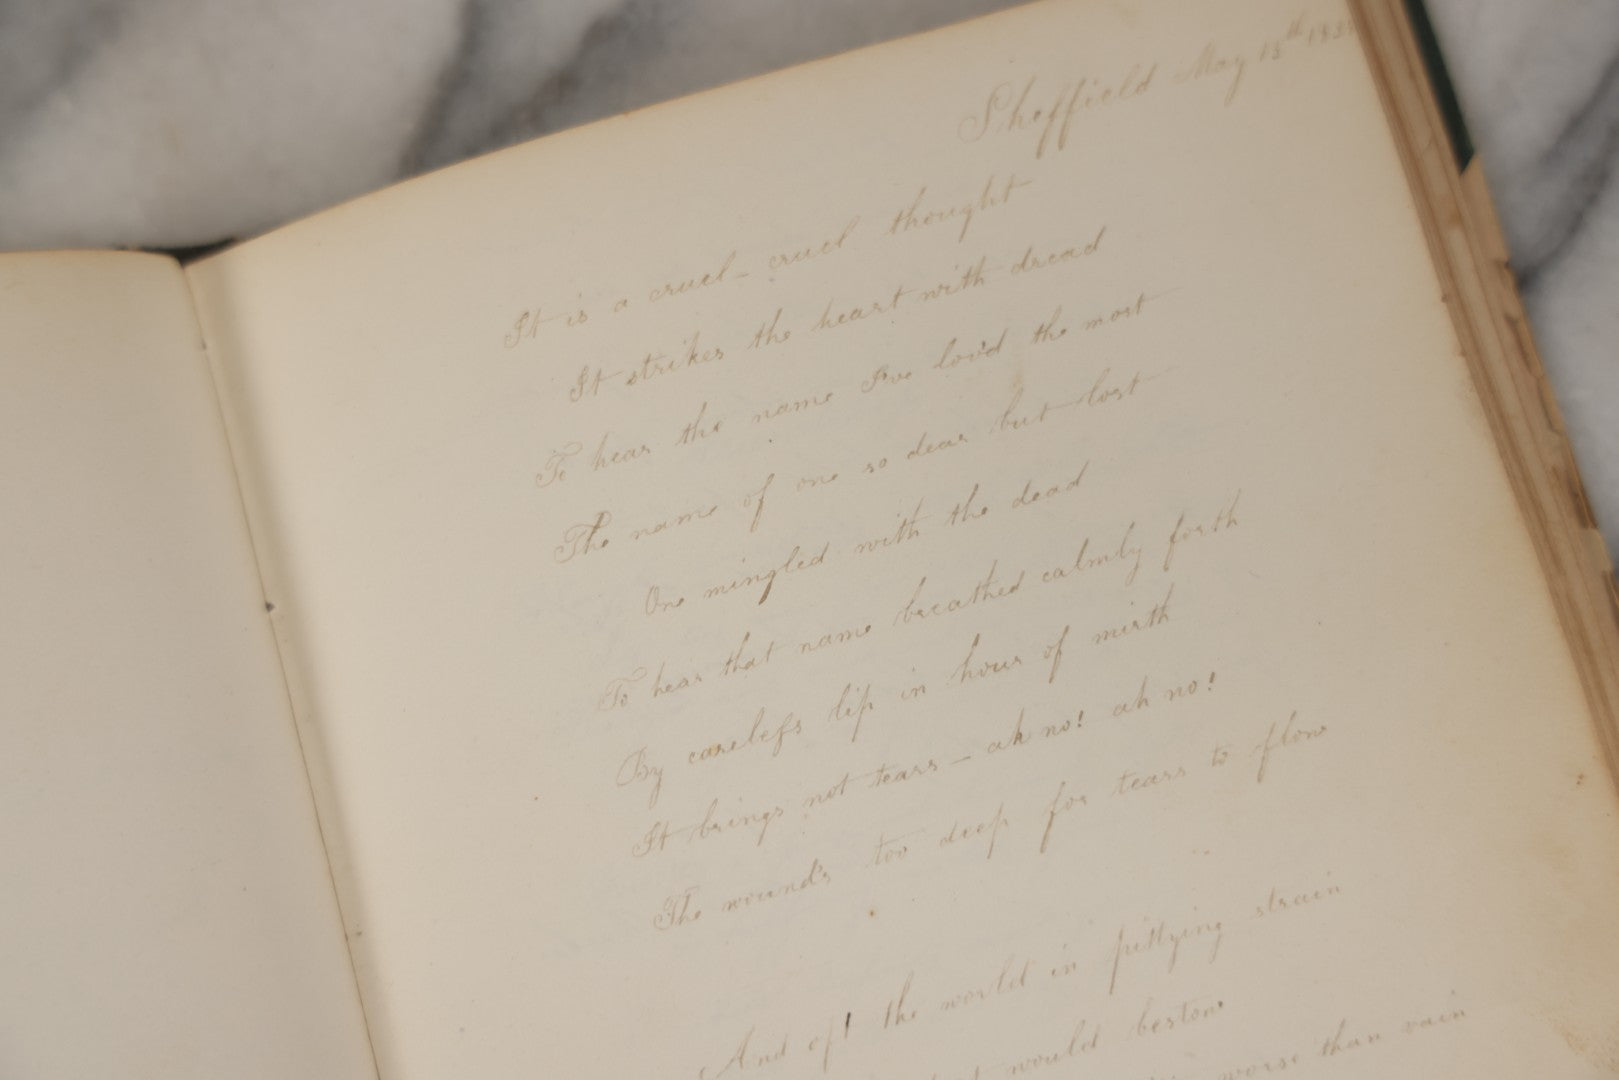 Sheffield May 13th
It is a cruel- cruel thought
It strikes the heart with dread
To hear the name I've lov'd the most
The name of one so dear but lost
One mingled with the dead
To hear that name breathed calmly forth
By careless lip in hour of mirth
It brings not tears - ah no! ah no!
The wound's too deep for tears to flow
And oft the world in pittying strain
would bestow
worse than vain